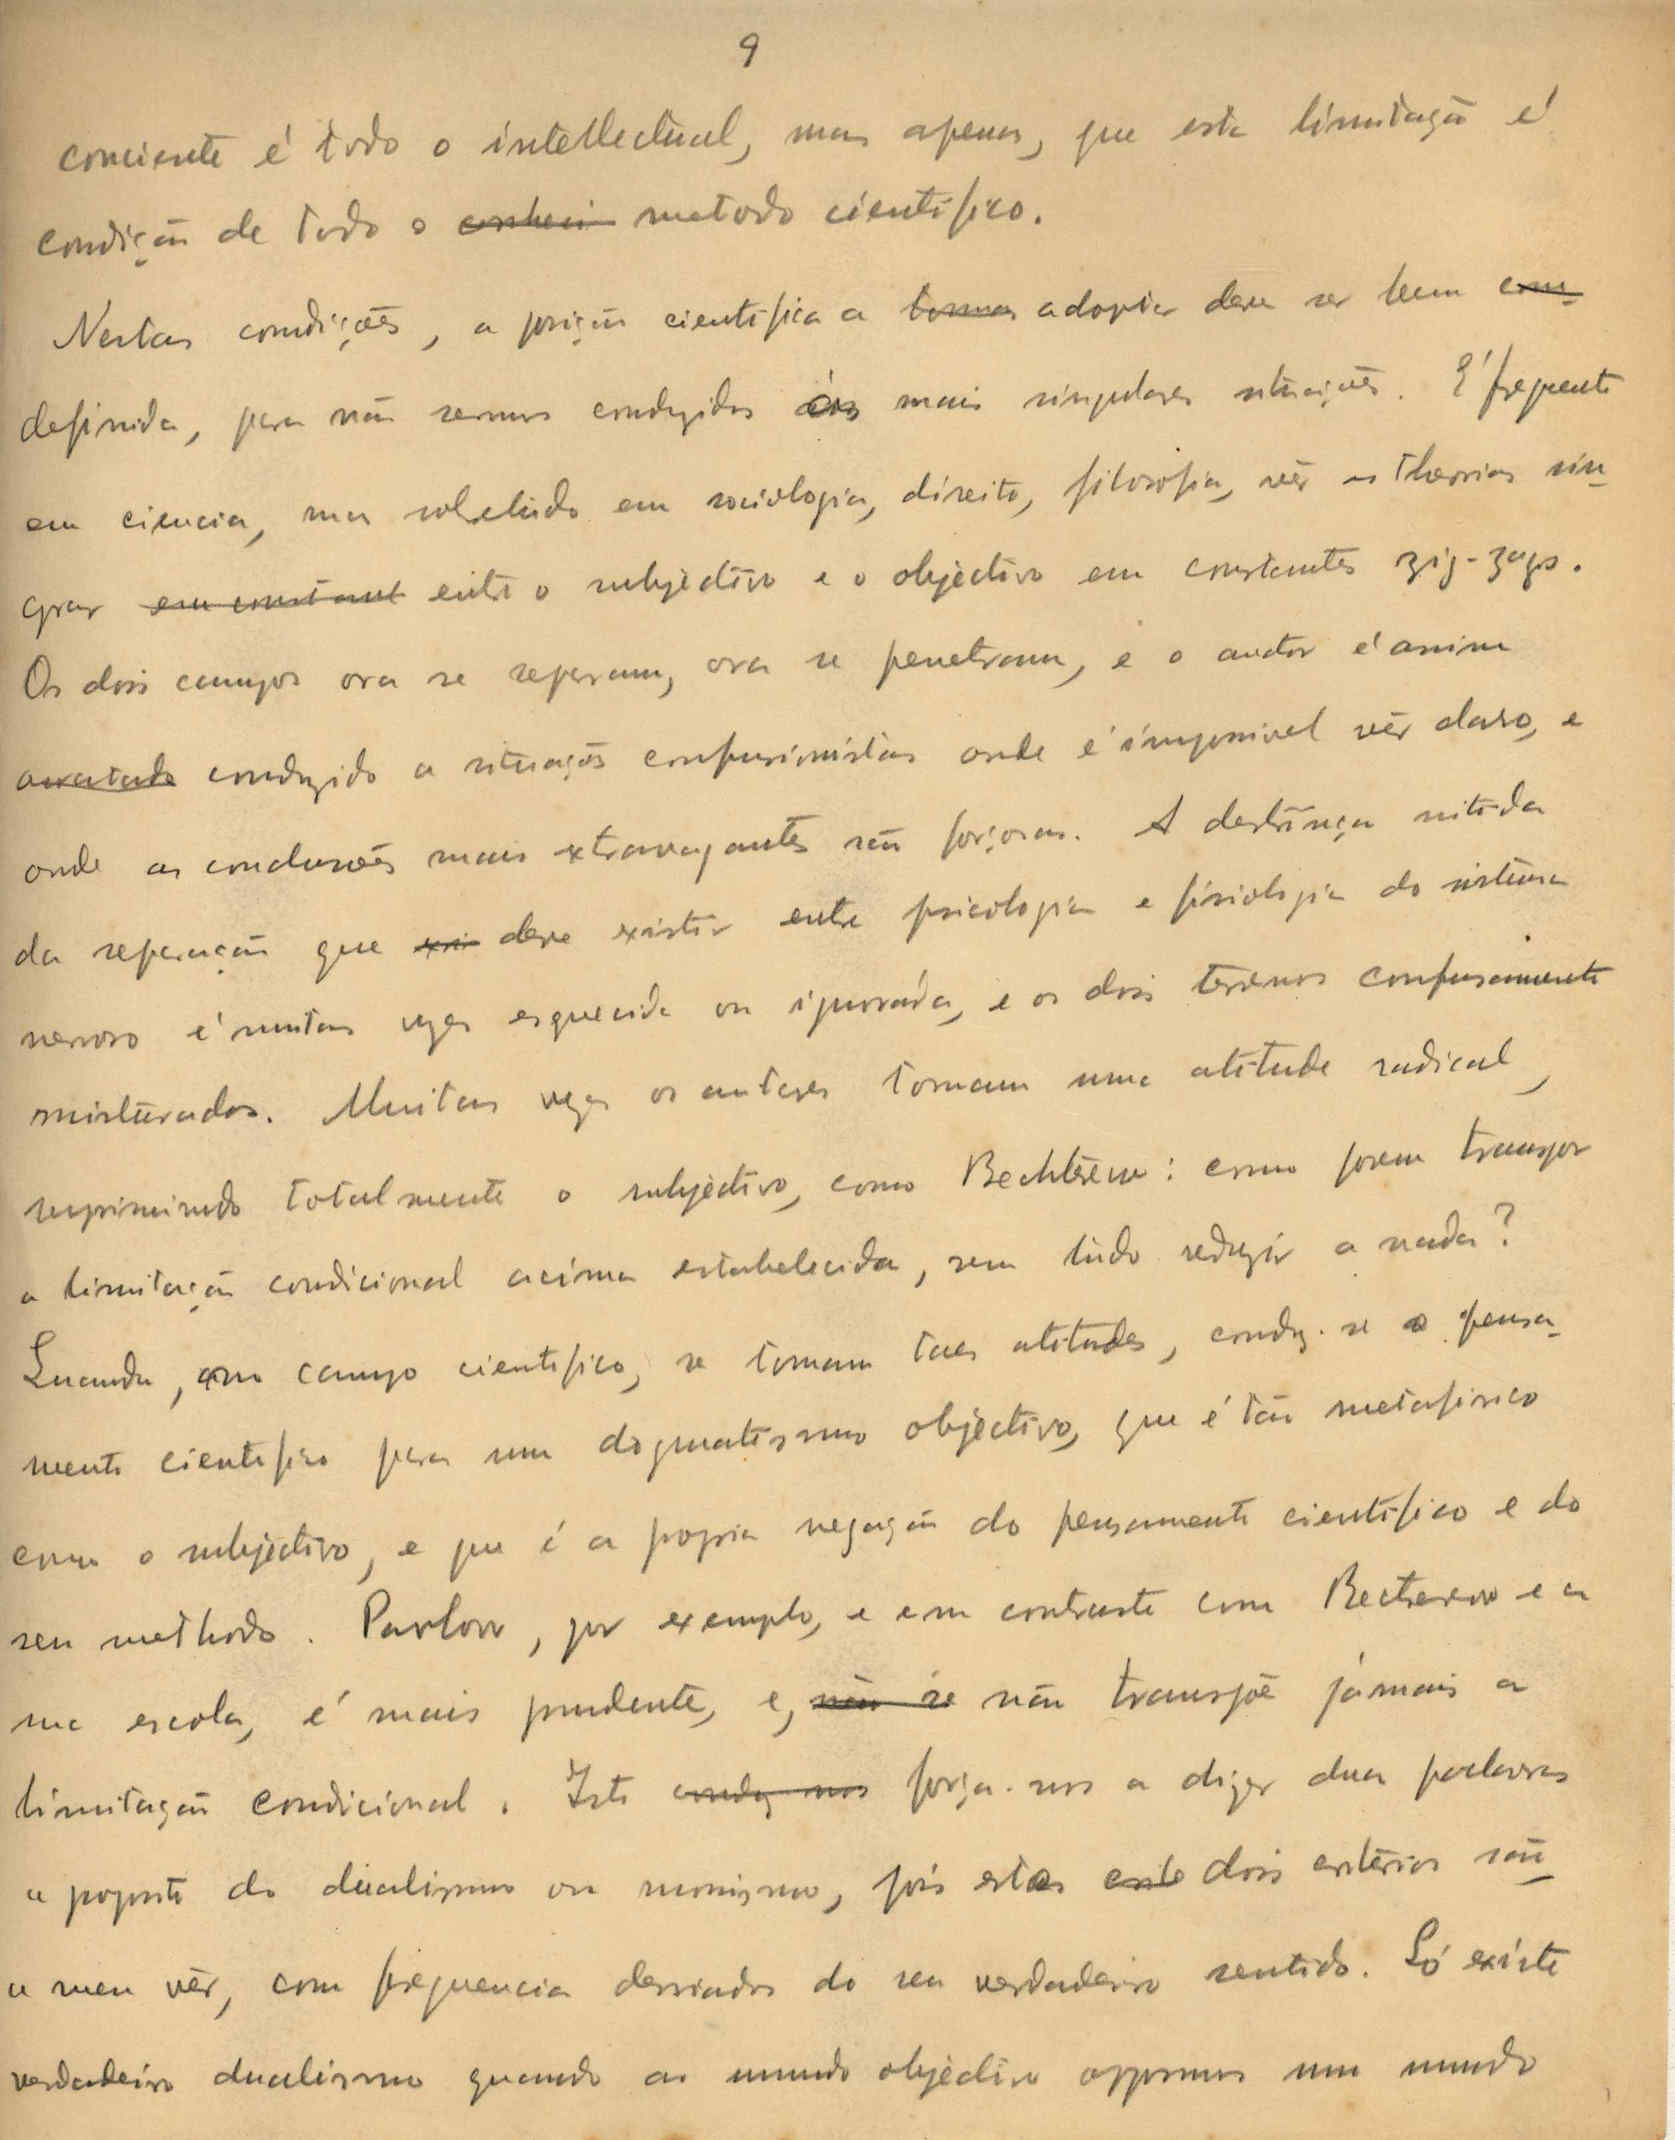 9
conciente é todo o intellectual, mas apenas, que esta limitação é
condição de todo o conheci metodo cientifico.
Nestas condições, a posição cientifica a tomar adoptar deve ser bem com-
definida, para não sermos conduzidos ás mais singulares situações. É frequente
em ciencia, mas sobretudo em sociologia, direito, filosofia, vêr as theorias sin-
grar em constant entre o subjectivo e o objectivo em constantes zig-zags.
Os dois campos ora se separam, ora se penetram, e o auctor é assim
arrastado conduzido a situações confusionistas onde é impossivel vêr claro, e
onde as conclusões mais extravagantes são forçosas. A destrinça nitida
da separação que exi deve existir entre psicologia e fisiologia do sistema
nervoso é muitas vezes esquecida ou ignorada, e os dois terrenos confusamente
misturados. Muitas vezes os autores tomam uma atitude radical,
suprimindo totalmente o subjectivo, como Bechterew: como porem transpor
a limitação condicional acima estabelecida, sem tudo reduzir a nada?
Quando, em campo cientifico, se tomam taes atitudes, conduz-se o pensa-
mento cientifico para um dogmatismo objectivo, que é tão metafisico
como o subjectivo, e que é a propria negação do pensamento cientifico e do
seu methodo. Pavlow, por exemplo, e em contraste com Bectherew e a
sua escola, é mais prudente, e, não se não transpõe jámais a
limitação condicional. Isto conduz nos força-nos a dizer duas palavras
a proposito do dualismo ou monismo, pois estes este dois criterios são
a meu vêr, com frequencia desviados do seu verdadeiro sentido. Só existe
verdadeiro dualismo quando ao mundo objectivo oppomos um mundo